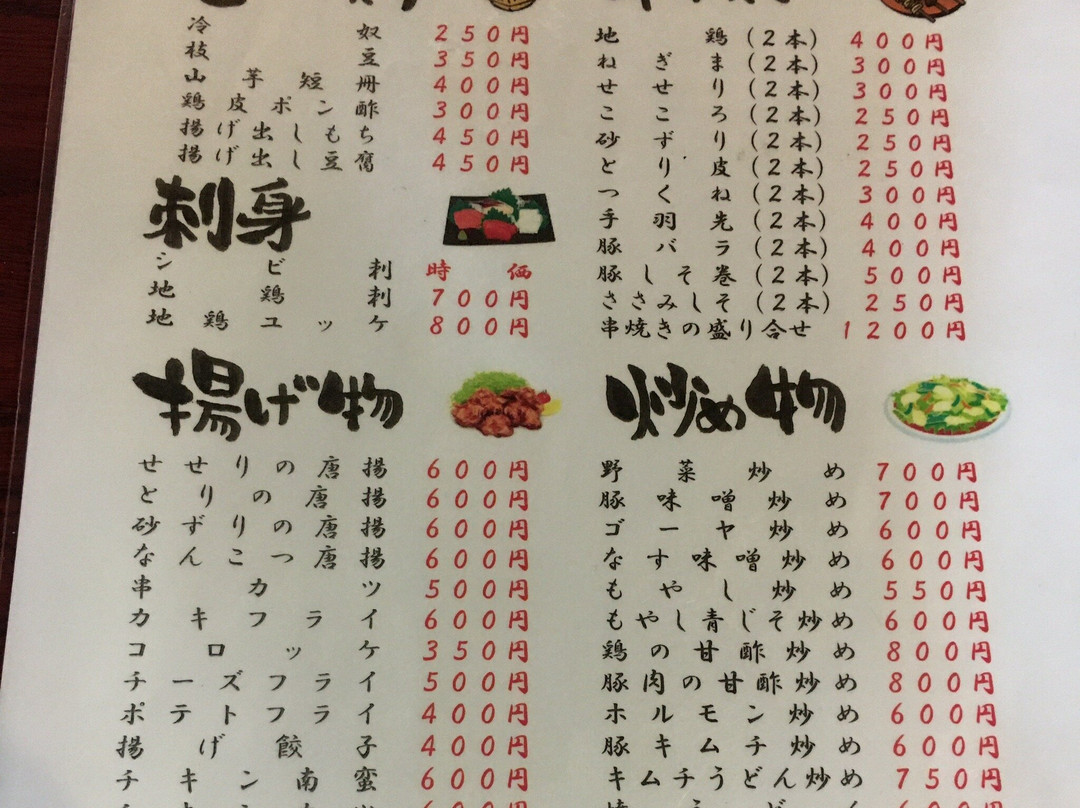 冷奴 250円
枝豆 350円
山芋短冊 400円
鶏皮ポン酢 300円
揚げ出しもち 450円
揚げ出し豆腐 450円
刺身
シビ刺 時価
地鶏刺 700円
地鶏ユッケ 800円
揚げ物
せせりの唐揚 600円
とりの唐揚 600円
砂ずりの唐揚 600円
なんこつ唐揚 600円
串カツ 500円
カキフライ 600円
コロッケ 350円
チーズフライ 500円
ポテトフライ 400円
揚げ餃子 400円
チキン南蛮 600円
地鶏(2本) 400円
ねぎま(2本) 300円
せせり(2本) 300円
こころ(2本) 250円
砂ずり(2本) 250円
とり皮(2本) 250円
つくね(2本) 300円
手羽先(2本) 400円
豚バラ(2本) 400円
豚しそ巻(2本) 500円
ささみしそ(2本) 250円
串焼きの盛り合せ 1200円
炒め物
野菜炒め 700円
豚味噌炒め 700円
ゴーヤ炒め 600円
なす味噌炒め 600円
もやし炒め 550円
もやし青じそ炒め 600円
鶏の甘酢炒め 800円
豚肉の甘酢炒め 800円
ホルモン炒め 600円
豚キムチ炒め 600円
キムチうどん炒め 750円